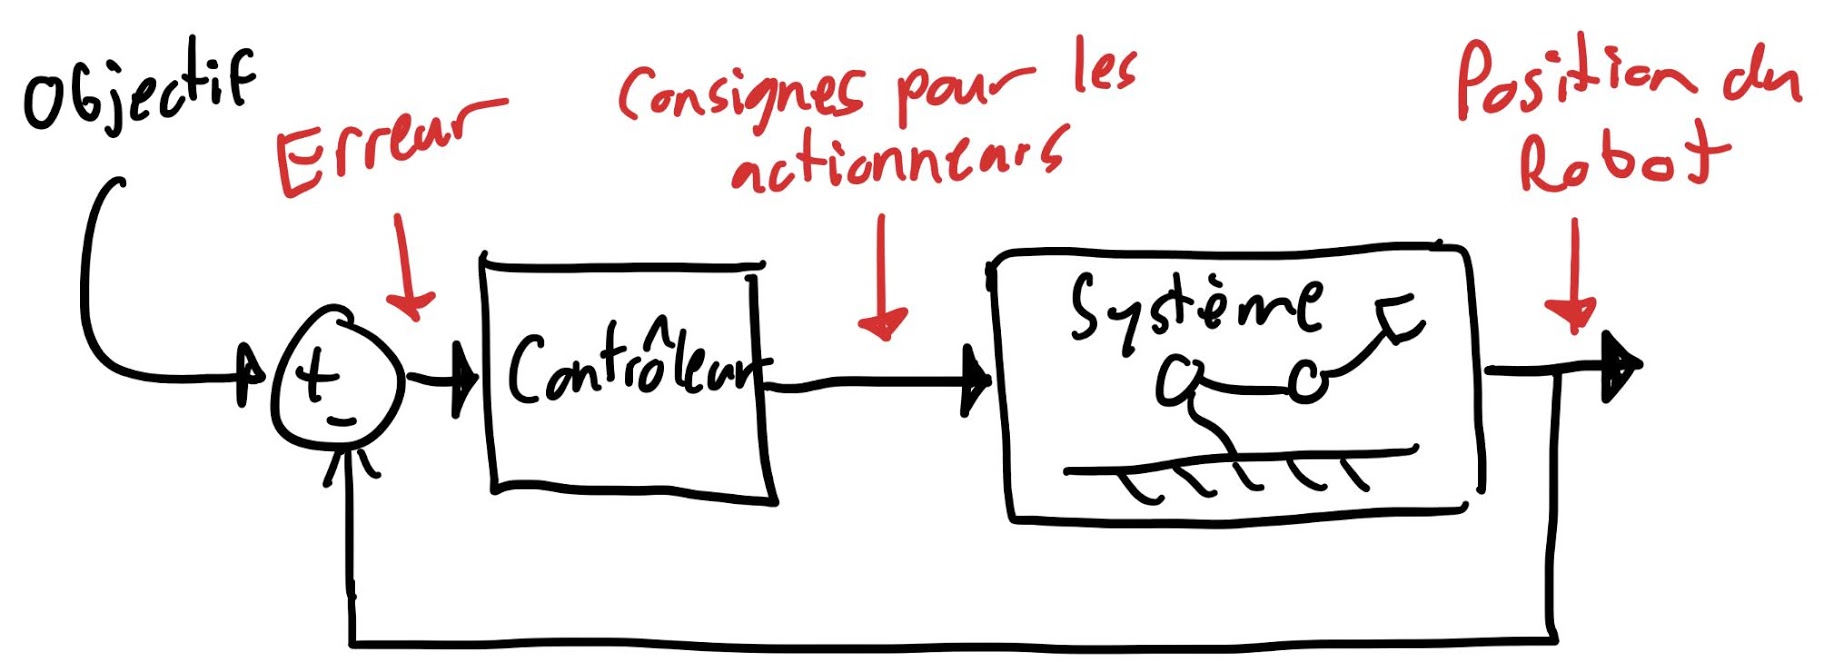 Objectif
Erreur
Consignes pour les
actionneurs
Position du
Robot
+
-
Contrôleur
Système